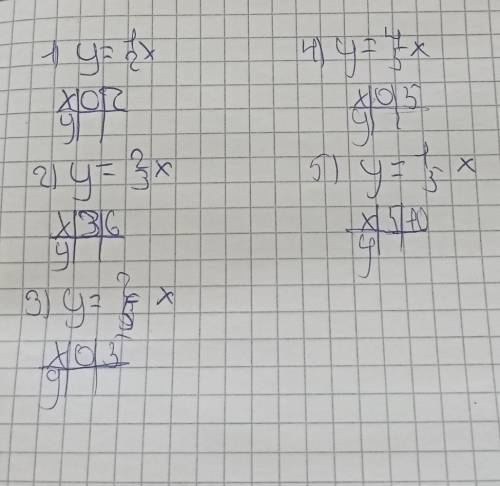 1) y = 1/2 x
x 0 2
y
2) y = 2/3 x
x 3 6
y
3) y = x
x 0 3
y
4) y = 4/5 x
x 0 5
y
5) y = 1/5 x
x 5 10
y